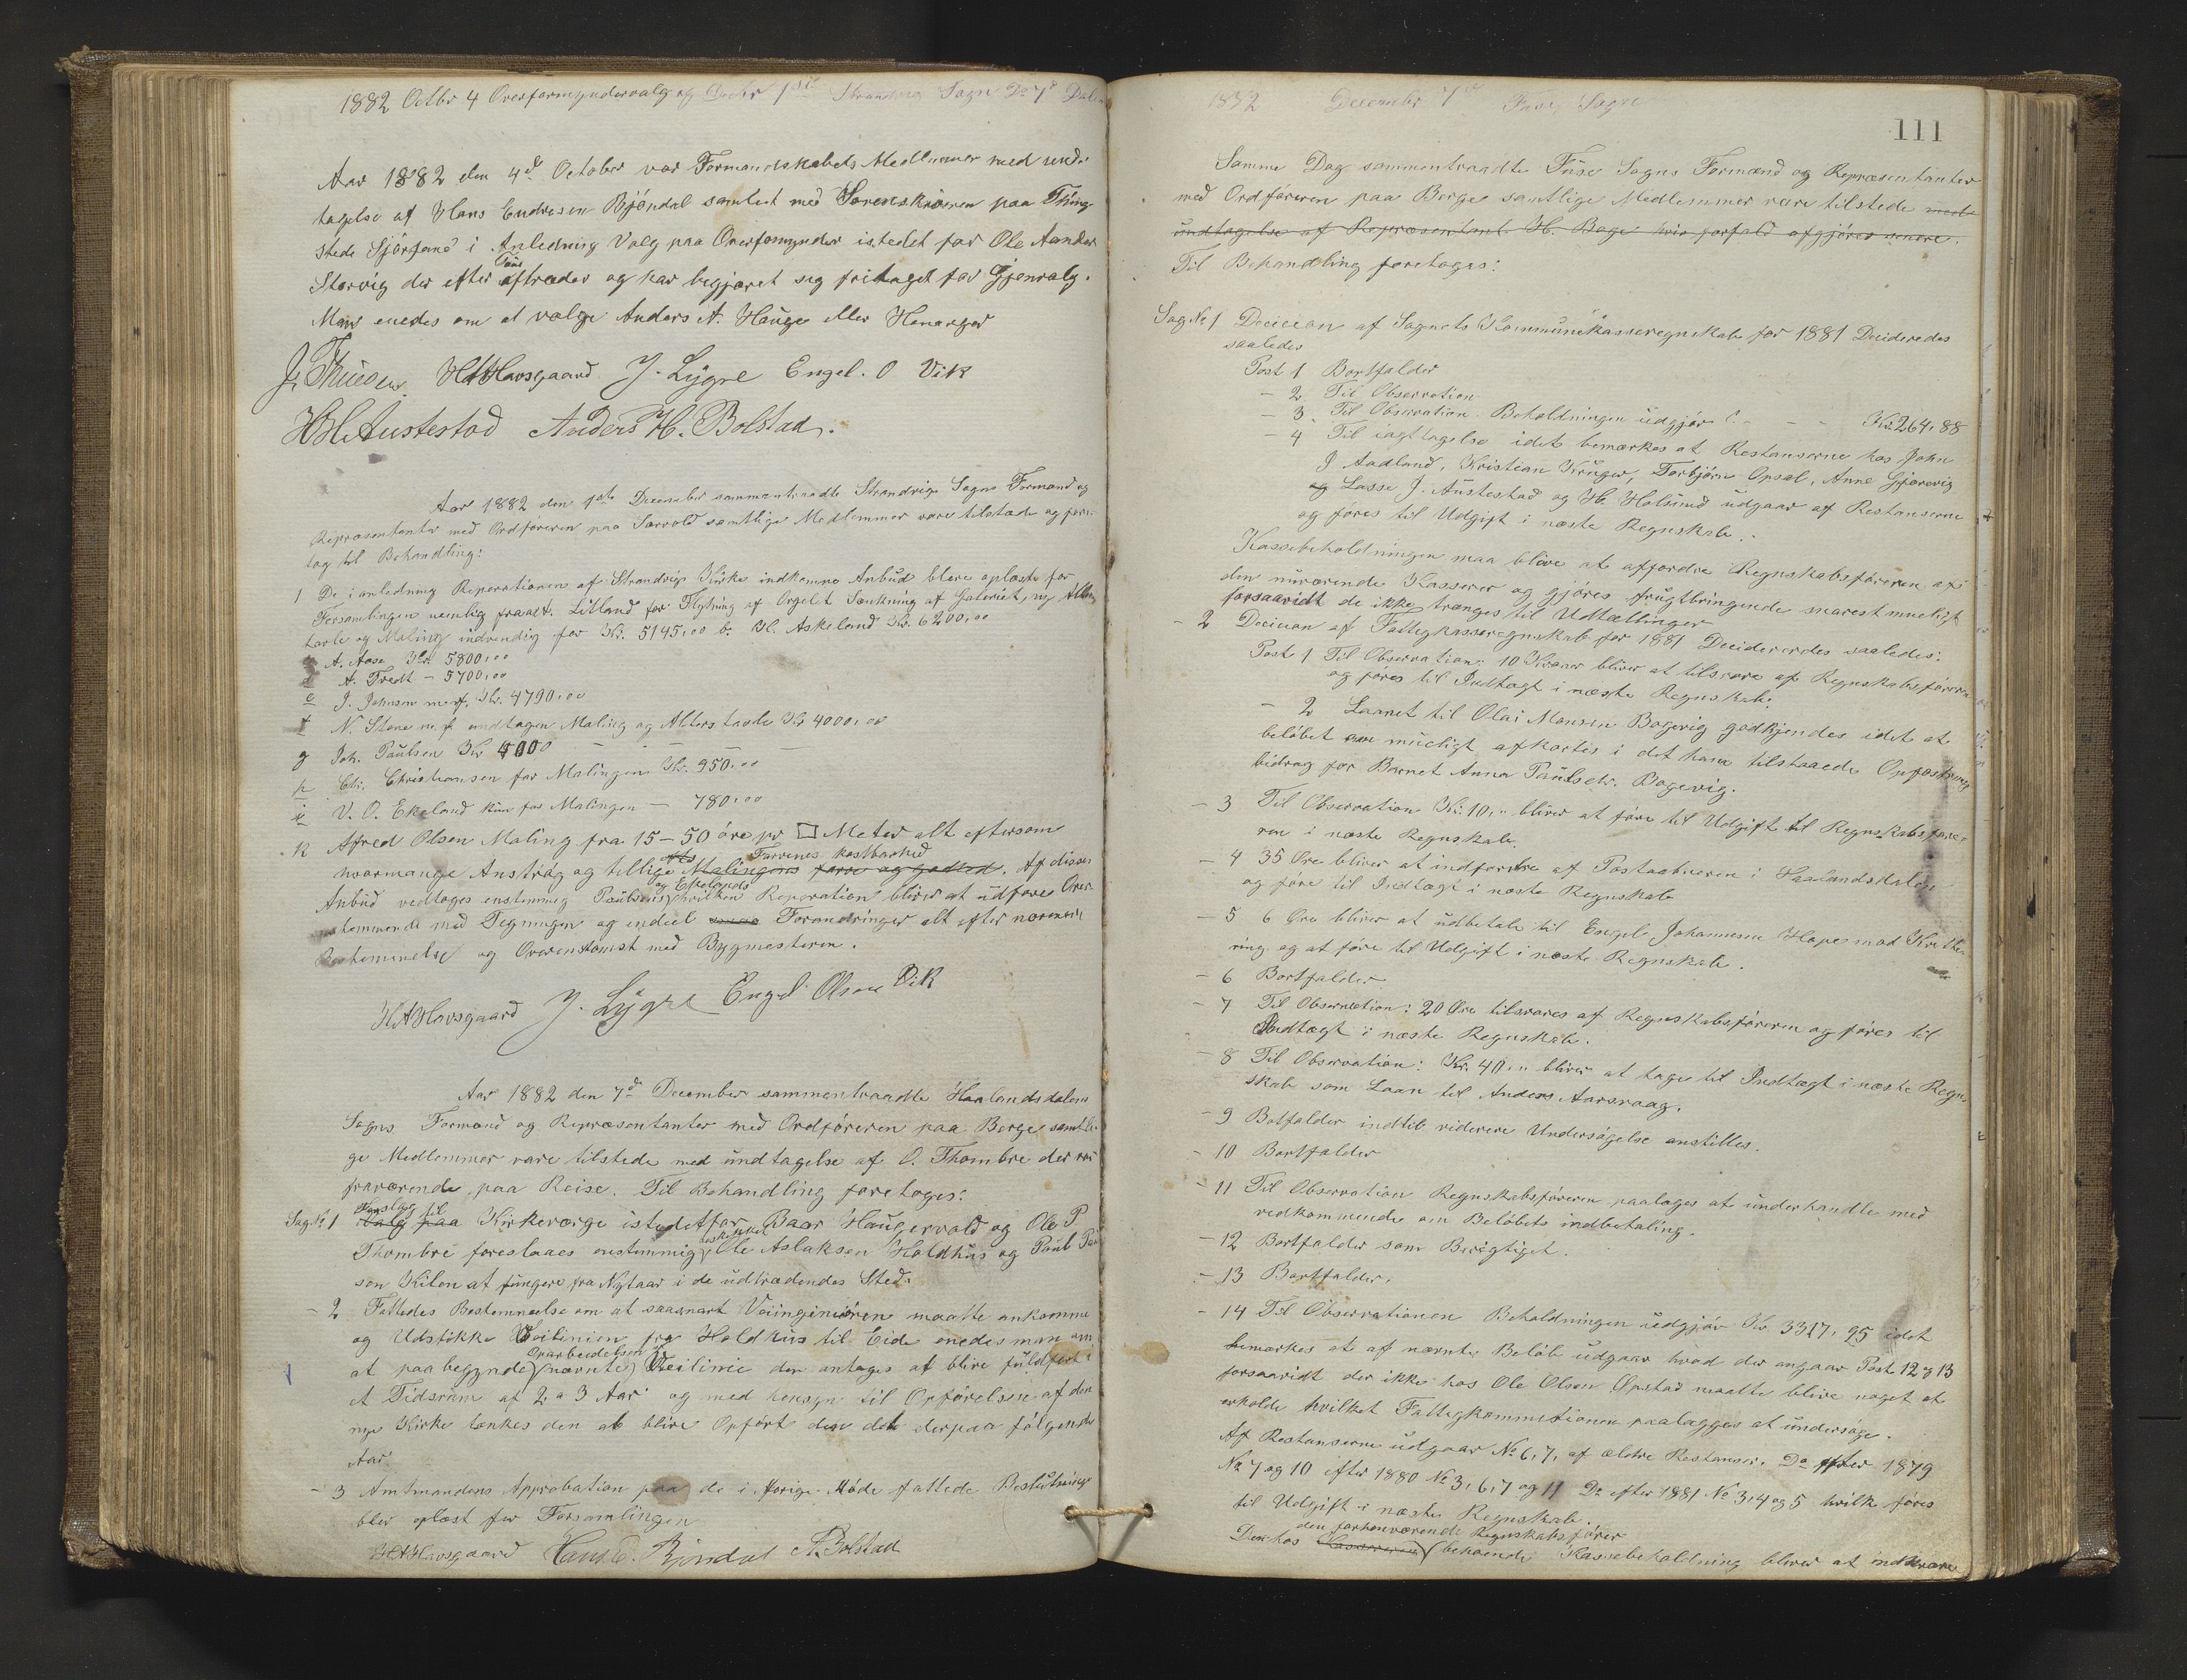 1882 Octbr 4 Overformyndervalg og Decbr 1ste Strandvig Sogn Do 7d
Aar 1882 den 4de October var Formandskabets Medlemmer med und-
tagelse af Hans Endresen Bjöndal samlet med Sorenskriveren paa Thing
stedet i Anledning Valg paa Overformynder istedet for Ole
Storvig der efter Tour aftræder og har begjæret sig fritaget for Gjenvalg.
Man enedes om at vælge Anders A. Hauge eller Henanger
HAHavsgaard J. Lygre Engel. O Vik
Austestad Anders H. Bolstad.
Aar 1882 den 1ste December sammentraadte Strandvigs Sogns Formænd og
Repræsentanter med Ordföreren paa Sævold samtlige Medlemmer vare tilstæde og fore-
tog til Behandling:
1 De i anledning Reperationen af Strandvigs Kirke indkomne Anbud bleve oplæste for
Forsamlingen nemlig fra Litland for Flytning af Orgelet Sænkning af Galeriet, ny Alter
tavle og Maling indvendig for Kr. 5195,00 b. Askeland Kr. 6200,00
A. Aase Kr. 5800,00
d A. Tredt - 5700,00
e J. Johnsen m. f. Kr. 4790,00
f N. Stene m. f. undtagen Maling og Alterstavle Kr 4000,00
g Joh. Paulsen Kr 4000
h Chr. Christiansen for Malingen Kr. 950,00
i V. O. Ekeland kun for Malingen - 780,00
k Afred Olsen Maling fra 15-50 öre pr □ Meter alt eftersom
hvormange Anströg og tillige Malingens farve og godhed. Af disse
Farvenes kostbarhed
Anbud vedtoges enstemmig Paulsens og Ekelands hvilken Reperation bliver at udföres Over-
enstemmende med Tegningen og endeel Forandringer alt efter nærmere
Bestemmelse og Overenskomst med Bygmesteren.
HAHavsgaard J. Lygre Engel Olsen Vik
Aar 1882 den 7de December sammentraadte Haalandsdalens
Sogns Formænd og Repræsentanter med Ordföreren paa Berge samtli-
ge Medlemmer vare tilstede med undtagelse af O. Thombre der var
fraværende paa Reise. Til Behandling foretoges:
Sag No 1 Valg paa Forslag til Kirkeværge istedetfor Baar Haugervold og Ole P.
Thombre foreslaaes enstemmig Ole Aslaksen Holdhus og Paul
sen Kilen at fungere fra Nytaar i de udtrædendes Sted.
- 2 Fattedes Bestemmelse om at saasnart Veiingeniören maatte ankomme
og Udstikke Veilinien fra Holdhus til Eide enedes man om
at paabegynde Oparbeidelsen af (nævnte) Veilinie der antages at blive fuldfört i
et Tidsrum af 2 a 3 Aar og med hensyn til Opförelsen af den
nye Kirke tænkes den at blive Opfört den det derpaa fölgende
Aar
- 3 Amtmandens Approbation paa de i forige Möde fattede Beslutninger
blev oplæst for Forsamlingen
HAHavsgaard Hans E. Bjöndal A. Bolstad
1882 December 7de Fuse Sogn
111
Samme Dag sammentraadte Fuse Sogns Formænd og Repræsentanter
med Ordföreren paa Berge samtlige Medlemmer vare tilstede med
undtagelse af Repræsentant H. Bage hvis forfald afgjöres senere.
Til Behandling foretoges:
Sag No 1 Decision af Sognets Kommunekasseregnskab for 1881 Decideredes
saaledes
Post 1 Bortfalder
- 2 Til Observation
- 3 Til Observation Beholdningen udgjör Kr. 264,88
- 4 Til iagttagelse idet bemærkes at Restanserne hos John
J Aadland, Kristian Krüger, Torbjörn Opsal, Anne Gjerevig
og Lasse J. Austestad og H. Holsund udgaar af Restanserne
og föres til Udgift i næste Regnskab.
Kassebeholdningen maa blive at affordre Regnskabsföreren af
den nuværende Kasserer og gjöres frugtbringende snarest mueligt
forsaavidt de ikke trænges til Udtællinger
- 2 Decision af Fattigkasseregnskab for 1881 Decideredes saaledes:
Post 1 Til Observation: 10 Kroner bliver at tilsvare af Regnskabsföreren
og föres til Indtægt i næste Regnskab.
- 2 Laanet til Olai Monsen Bagevig godkjendes idet at
belöbet om mueligt afkortes i det ham tilstaaede Opfostrings
bidrag for Barnet Anna Paulsdtr. Bagevig.
- 3 Til Observation Kr. 10,- bliver at före til Udgift til Regnskabsföre-
ren i næste Regnskab.
- 4 35 Öre bliver at indfordre af Postaabneren i Haalandsdalen
og före til Indtægt i næste Regnskab
- 5 6 Öre bliver at udbetale til Engel Johannesen Hope mod Kvitte
ring og at före til Udgift i næste Regnskab.
- 6 Bortfalder
- 7 Til Observation: 20 Öre tilsvares af Regnskabsföreren og föres til
Indtægt i næste Regnskab.
- 8 Til Observation: Kr. 40,- bliver at tage til Indtægt i næste Regn-
skab som Laan til Anders Aarsvaag.
- 9 Botfalder indtil viderere Undersögelse anstilles.
- 10 Bortfalder
- 11 Til Observation Regnskabsföreren paalæges at underhandle med
vedkommende om Belöbets indbetaling.
- 12 Bortfalder som Berigtiget.
- 13 Bortfalder.
- 14 Til Observationen Beholdningen udgjör Kr 3317,95 idet
bemærkes at af nævnte Belöb udgaar hvad der angaar Post 12 og 13
forsaavidt der ikke hos Ole Olsen Opstad maatte blive noget at
erholde hvilket Fattigkommisionen paalægges at undersöge.
Af Restanserne udgaar No 6, 7, af ældre Restanser. Do efter 1879
No 7 og 10 efter 1880 No 3, 6, 7 og 11 Do efter 1881 No 3, 4 og 5 hvilk föres
til Udgift i næste Regnskab.
Den hos Kassereren den forhenværende Regnskabsförer beroende Kassebeholdning bliver at indkræve